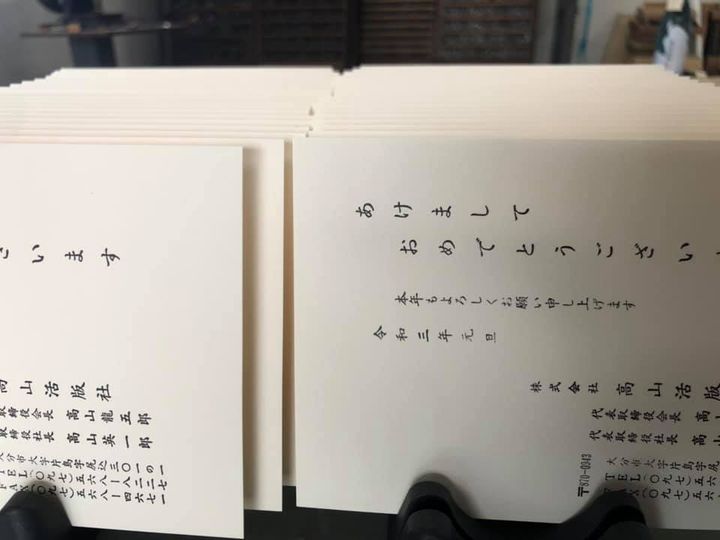 います
高山活版社
取締役会長 高山龍五郎
取締役社長 高山英一郎
大分市大字片島字尻込
TEL(〇九七)五六八
あけまして
おめでとうござい
本年もよろしくお願い申し上げます
令和三年元旦
株式会社 高山活版
代表取締役会長 高山
代表取締役社長 高山
〒870-0943
大分市大字片島字尻
TEL(〇九七)五六
FAX(〇九七)五六